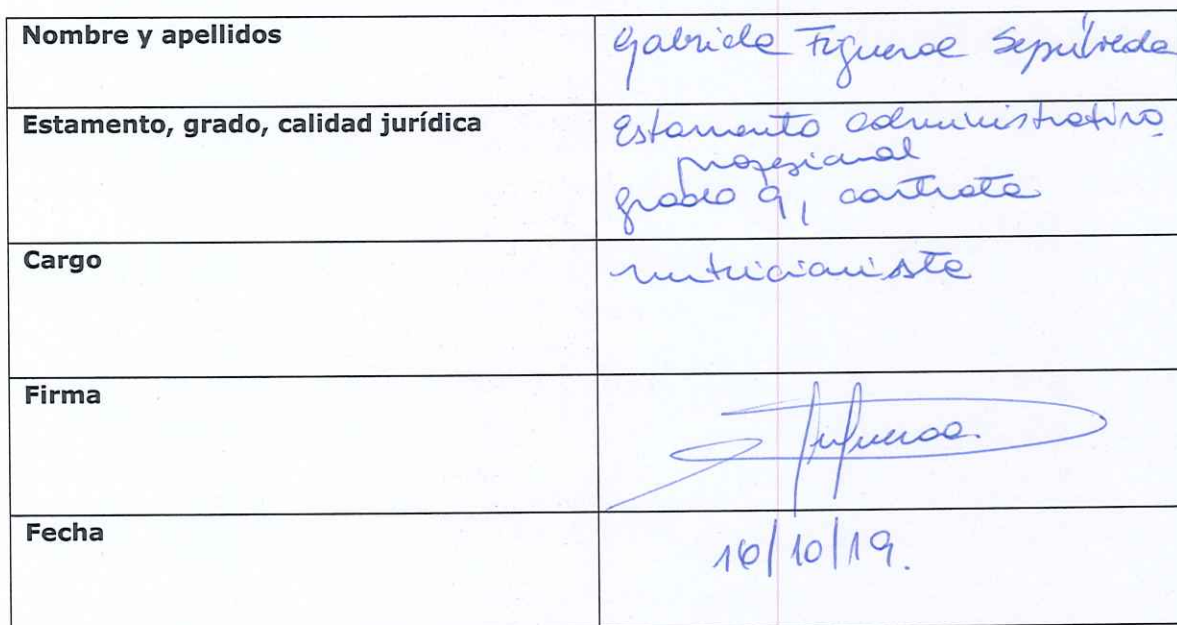 Nombre y apellidos
Gabriela Figueroa Sepúlveda
Estamento, grado, calidad jurídica
Estamento administrativo
profesional
grado 9, contrata
Cargo
nutricionista
Firma
Figueroa.
Fecha
16/10/19.